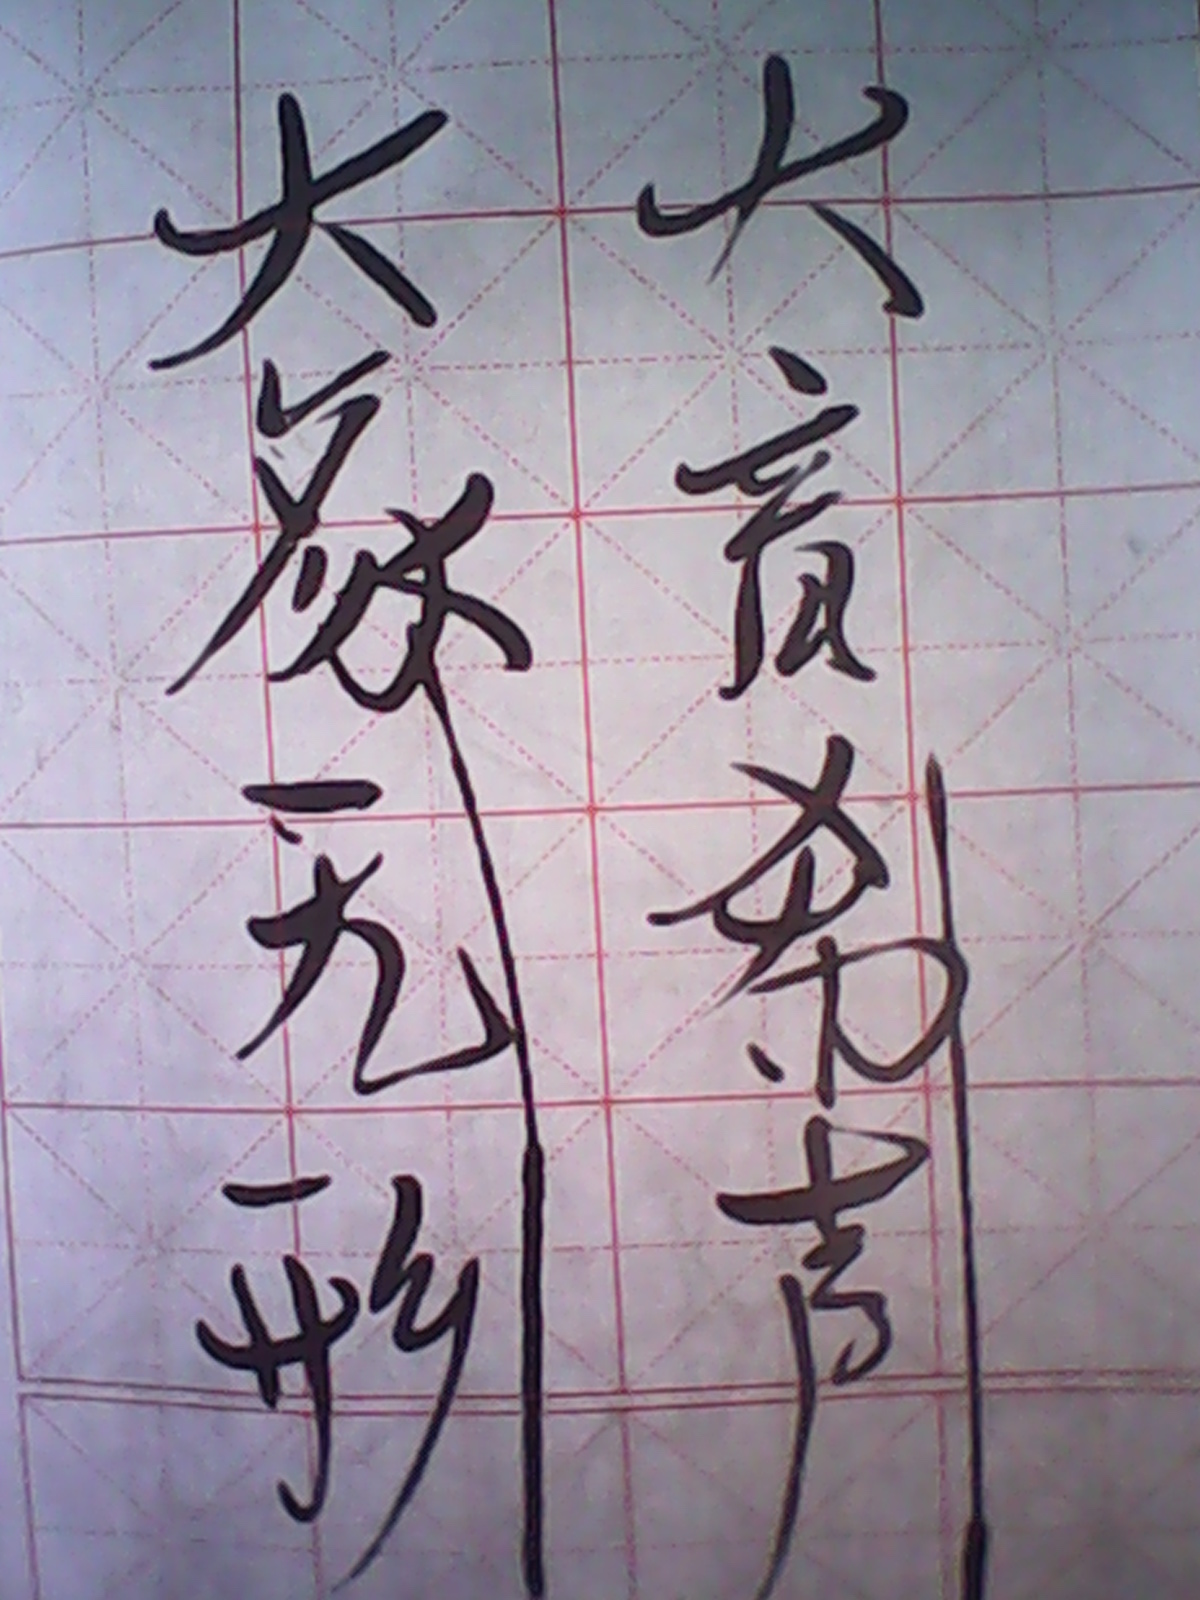 大音希声
大象无形